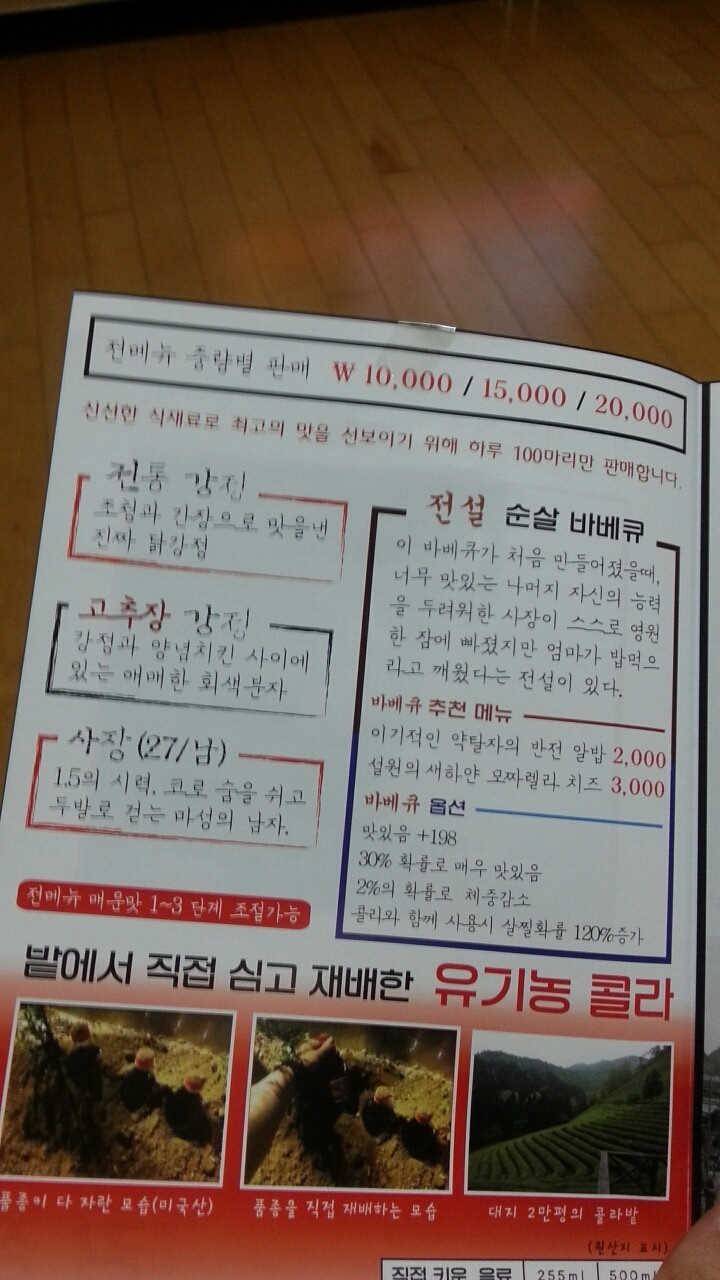 전메뉴 중량별 판매 ₩ 10,000 / 15,000 / 20,000
신선한 식재료로 최고의 맛을 선보이기 위해 하루 100마리만 판매합니다.
전통 강정
조청과 간장으로 맛을낸
진짜 닭강정
고추장 강정
강정과 양념치킨 사이에
있는 애매한 회색분자
사장(27/남)
1.5의 시력, 코로 숨을 쉬고
두발로 걷는 마성의 남자.
전메뉴 매운맛 1~3 단계 조절가능
전설 순살 바베큐
이 바베큐가 처음 만들어졌을때,
너무 맛있는 나머지 자신의 능력
을 두려워한 사장이 스스로 영원
한 잠에 빠졌지만 엄마가 밥먹으
라고 깨웠다는 전설이 있다.
바베큐 추천 메뉴
이기적인 약탈자의 반전 알밥 2,000
설원의 새하얀 모짜렐라 치즈 3,000
바베큐 옵션
맛있음 +198
30% 확률로 매우 맛있음
2%의 확률로 체중감소
콜라와 함께 사용시 살찔확률 120%증가
밭에서 직접 심고 재배한 유기농 콜라
품종이 다 자란 모습(미국산)
품종을 직접 재배하는 모습
대지 2만평의 콜라밭
(원산지 표시)
직접 키운 음료 255ml 500ml